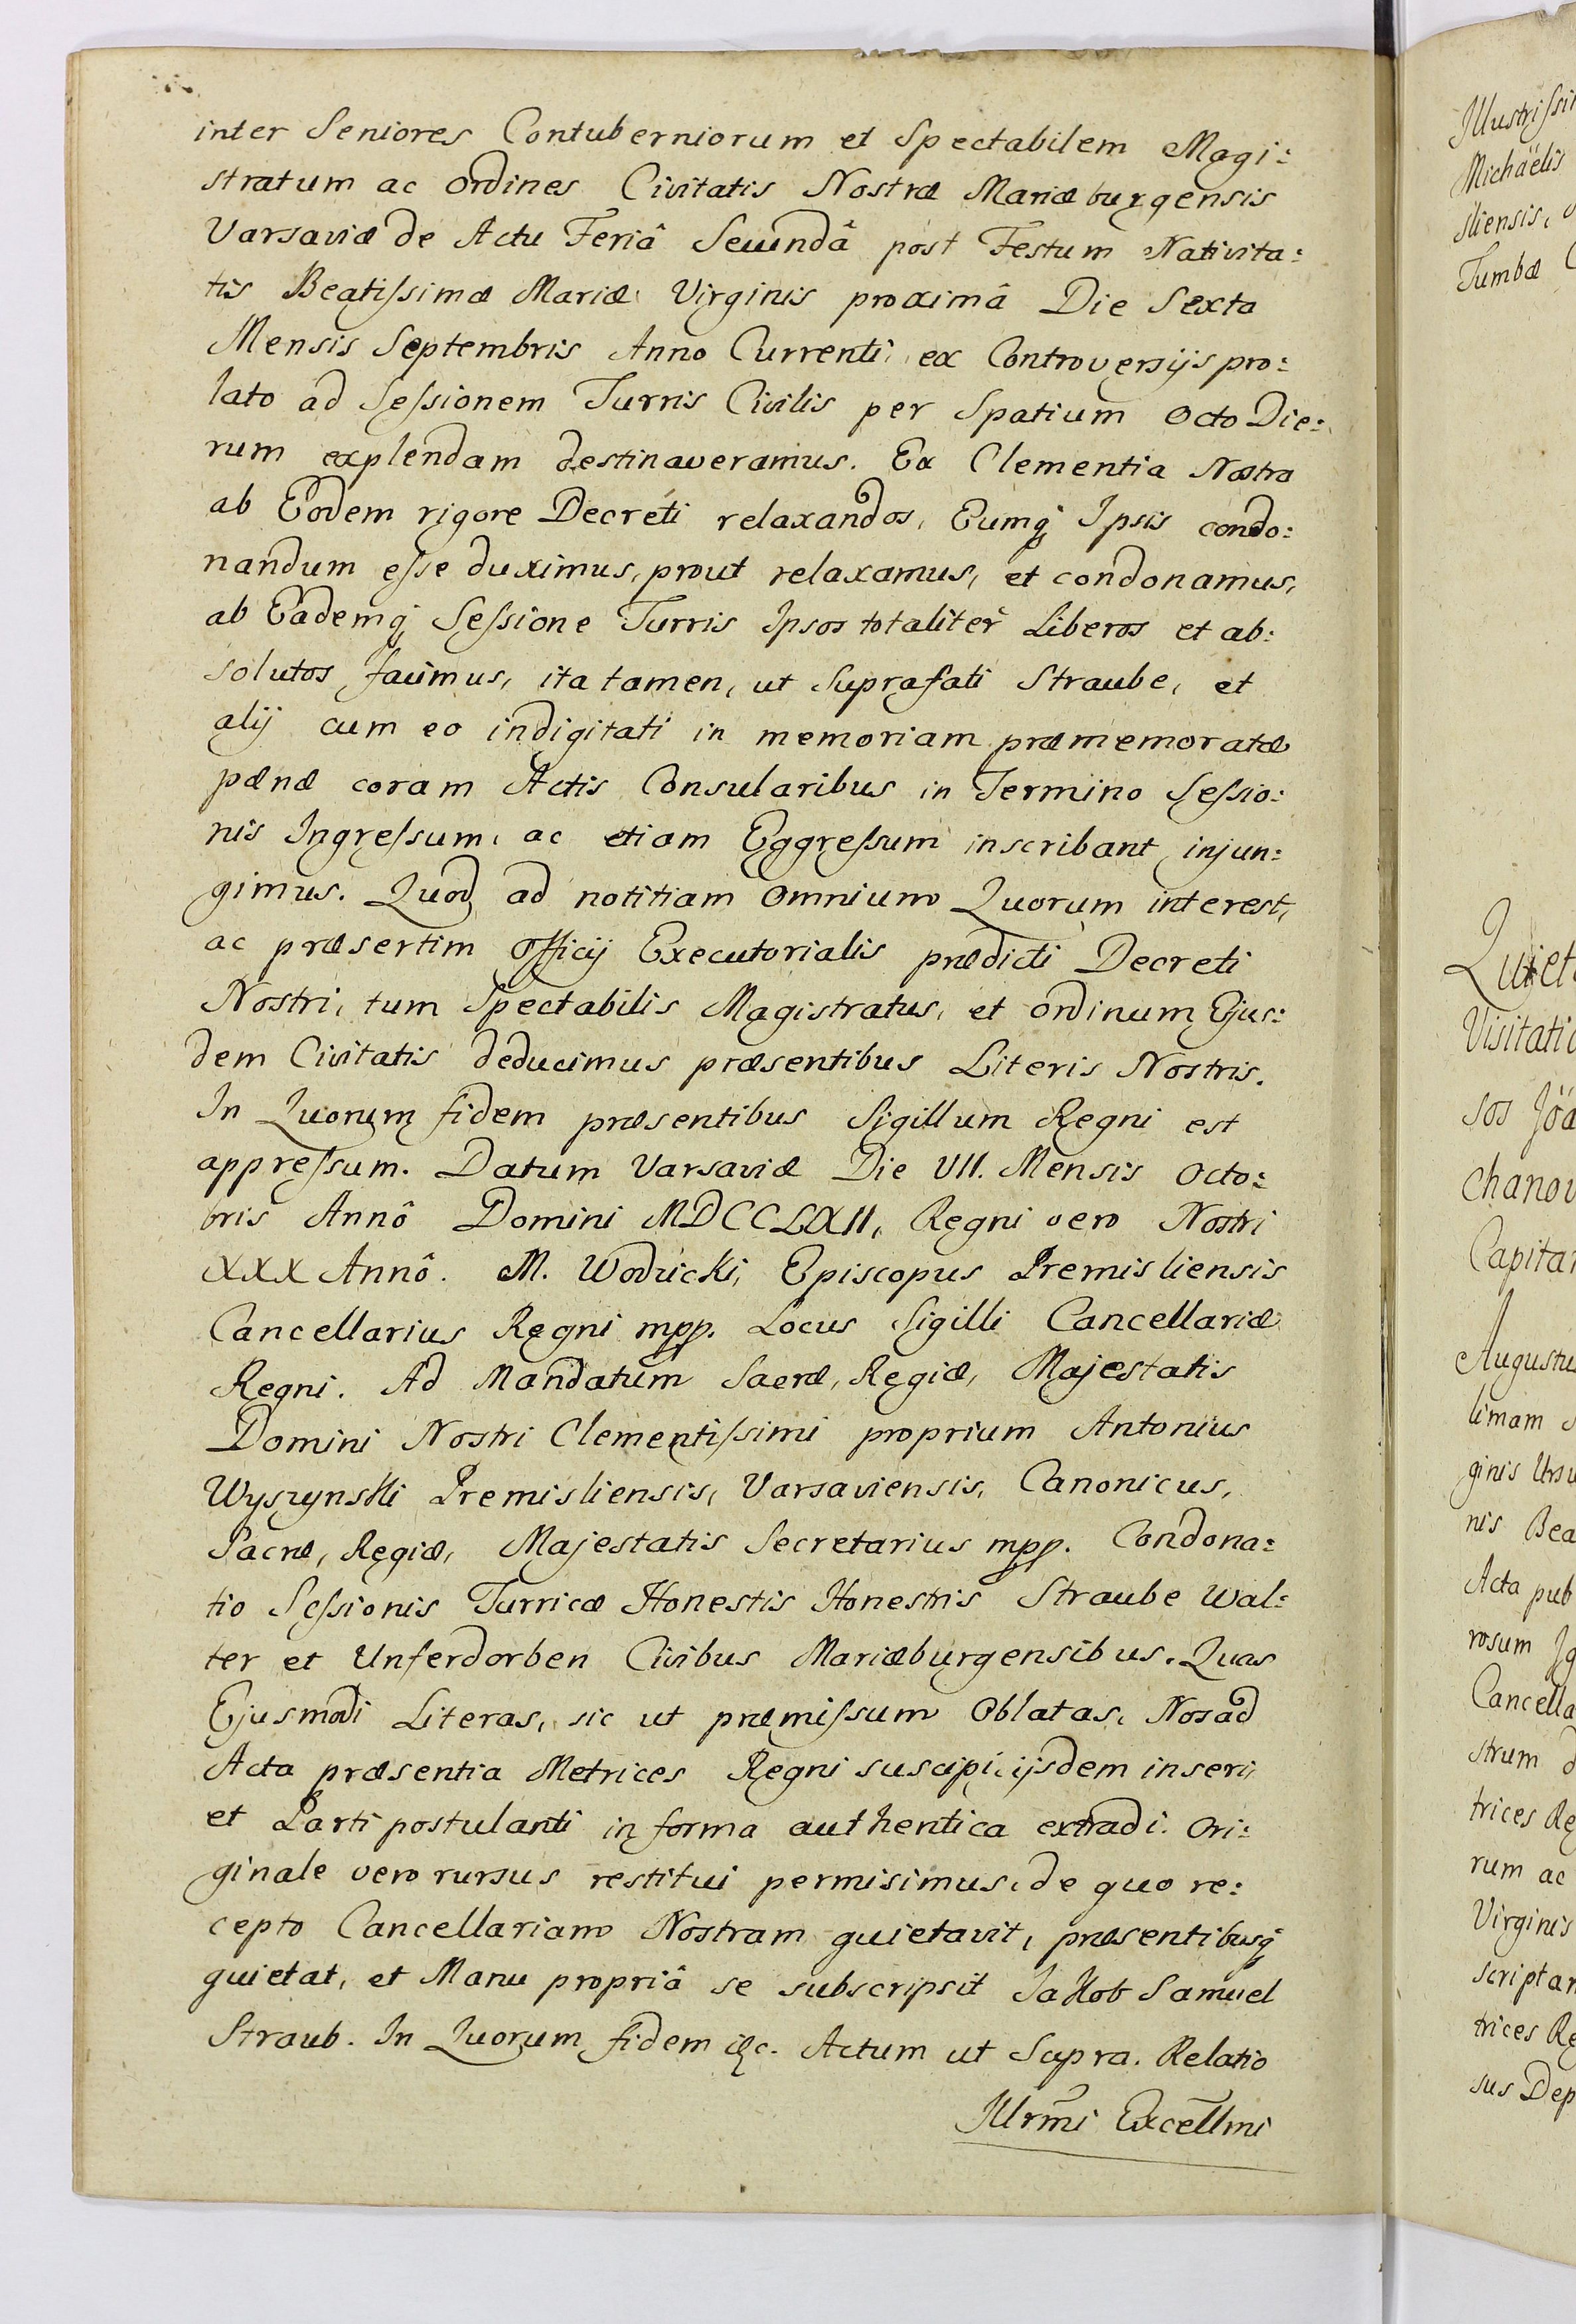 inter Seniores Contuberniorum et Spectabilem Magi:
stratum ac Ordines Civitatis Nostræ Mariæburgensis
Varsaviæ de Actu Feriâ Secundâ post Festum Nativita:
tis Beatissimæ Mariæ Virginis proximâ Die Sexta
Mensis Septembris Anno Currenti, ex Controversijs pro:
lato ad Sessionem Turris Civilis per Spatium Octo Die:
rum explendam destinaveramus. Ex Clementia Nostra
ab Eodem rigore Decreti relaxandos, Eumq Ipsis condo:
nandum esse duximus, prout relaxamus, et condonamus,
ab Eademq Sessione Turris Ipsos totaliter Liberos et ab:
solutos facimus, ita tamen, ut Suprafati Straube, et
alij cum eo indigitati in memoriam præmemoratæ
pænæ coram Actis Consularibus in Termino Sessio:
nis Ingressum, ac etiam Eggressum inscribant injun:
gimus. Quod ad notitiam Omnium Quorum interest,
ac præsertim Officij Executorialis prædicti Decreti
Nostri, tum Spectabilis Magistratus, et Ordinum Ejus:
dem Civitatis deducimus præsentibus Literis Nostris.
In Quorum fidem præsentibus Sigillum Regni est
appressum. Datum Varsaviæ Die VII. Mensis Octo:
bris Annô Domini MDCCLXII, Regni vero Nostri
XXX Annô. M. Wodzicki, Episcopus Premisliensis
Cancellarius Regni mpp. Locus Sigilli Cancellariæ
Regni. Ad Mandatum Sacræ, Regiæ, Majestatis
Domini Nostri Clementissimi proprium Antonius
Wyszynski Premisliensis, Varsaviensis, Canonicus,
Sacræ, Regiæ, Majestatis Secretarius mpp. Condona:
tio Sessionis Turricæ Honestis Honestris Straube Wal:
ter et Unferdorben Civibus Mariæburgensibus. Quas
Ejusmodi Literas, sic ut præmissum Oblatas, Nos ad
Acta præsentia Metrices Regni suscipi, ijsdem inseri,
et Parti postulanti in forma authentica extradi. Ori:
ginale vero rursus restitui permisimus, de quo re:
cepto Cancellariam Nostram quietavit, præsentibusq
quietat, et Manu propriâ se subscripsit Jakob Samuel
Straub. In Quorum fidem &c. Actum ut Supra. Relatio
Illrmi Excellmi
Illustrissi
Michaëlis
sliensis,
Tumbæ
Quiet
Visitatio
sos Joa
chanov
Capita
Augustu
limam
ginis Ursu
nis Bea
Acta pub
rosum Ig
Cancella
strum d
trices Re
rum ac
Virginis
scriptar
trices Re
sus Dep